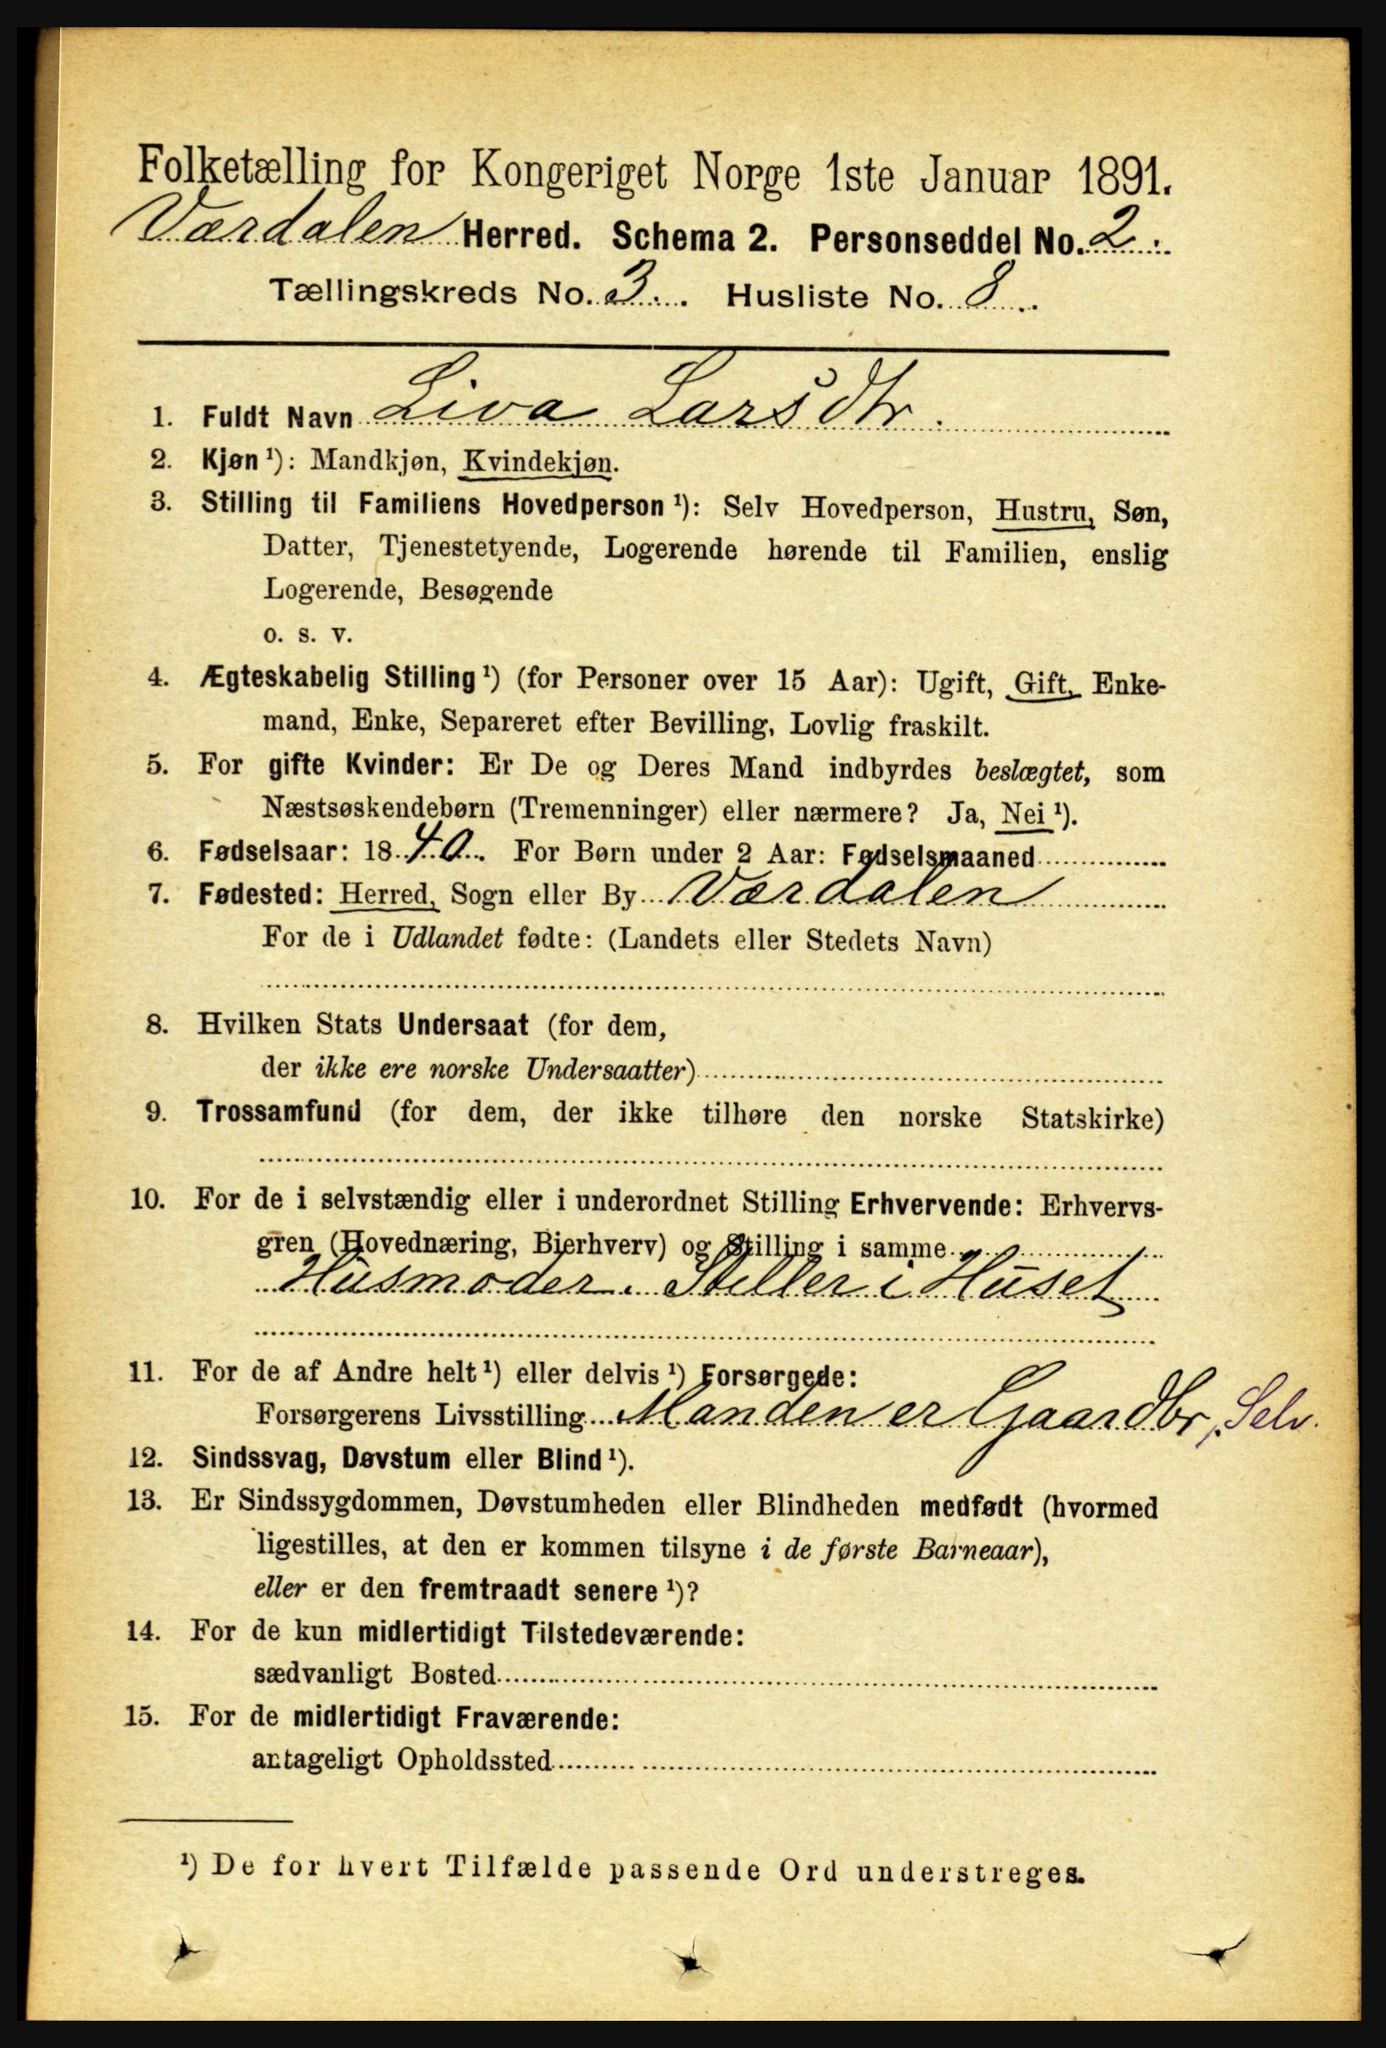 Folketælling for Kongeriget Norge 1ste Januar 1891.
Værdalen Herred. Schema 2. Personseddel No. 2.
Tællingskreds No. 3. Husliste No. 8.
1. Fuldt Navn Liva Larsdtr.
2. Kjøn ¹): Mandkjøn, Kvindekjøn.
3. Stilling til Familiens Hovedperson ¹): Selv Hovedperson, Hustru, Søn,
Datter, Tjenestetyende, Logerende hørende til Familien, enslig
Logerende, Besøgende
o. s. v.
4. Ægteskabelig Stilling ¹) (for Personer over 15 Aar): Ugift, Gift, Enke-
mand, Enke, Separeret efter Bevilling, Lovlig fraskilt.
5. For gifte Kvinder: Er De og Deres Mand indbyrdes beslægtet, som
Næstsøskendebørn (Tremenninger) eller nærmere? Ja, Nei ¹).
6. Fødselsaar: 1840. For Børn under 2 Aar: Fødselsmaaned
7. Fødested: Herred, Sogn eller By Værdalen
For de i Udlandet fødte: (Landets eller Stedets Navn)
8. Hvilken Stats Undersaat (for dem,
der ikke ere norske Undersaatter)
9. Trossamfund (for dem, der ikke tilhøre den norske Statskirke)
10. For de i selvstændig eller i underordnet Stilling Erhvervende: Erhvervs-
gren (Hovednæring, Bierhverv) og Stilling i samme
Husmoder. Steller i Huset
11. For de af Andre helt ¹) eller delvis ¹) Forsørgede:
Forsørgerens Livsstilling Manden er Gaardbr, Selv.
12. Sindssvag, Døvstum eller Blind ¹).
13. Er Sindssygdommen, Døvstumheden eller Blindheden medfødt (hvormed
ligestilles, at den er kommen tilsyne i de første Barneaar),
eller er den fremtraadt senere ¹)?
14. For de kun midlertidigt Tilstedeværende:
sædvanligt Bosted
15. For de midlertidigt Fraværende:
antageligt Opholdssted
¹) De for hvert Tilfælde passende Ord understreges.